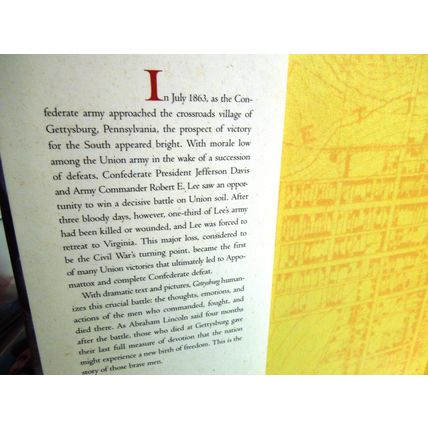 In July 1863, as the Con-
federate army approached the crossroads village of
Gettysburg, Pennsylvania, the prospect of victory
for the South appeared bright. With morale low
among the Union army in the wake of a succession
of defeats, Confederate President Jefferson Davis
and Army Commander Robert E. Lee saw an oppor-
tunity to win a decisive battle on Union soil. After
three bloody days, however, one-third of Lee's army
had been killed or wounded, and Lee was forced to
retreat to Virginia. This major loss, considered to
be the Civil War's turning point, became the first
of many Union victories that ultimately led to Appo-
mattox and complete Confederate defeat.
With dramatic text and pictures, Gettysburg human-
izes this crucial battle: the thoughts, emotions, and
actions of the men who commanded, fought, and
died there. As Abraham Lincoln said four months
after the battle, those who died at Gettysburg gave
their last full measure of devotion that the nation
might experience a new birth of freedom. This is the
story of those brave men.